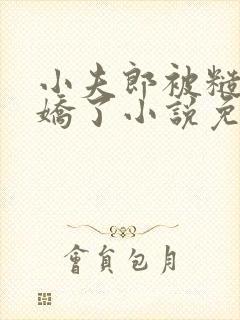 小夫郎被糙
嬌了小說免
會員包月